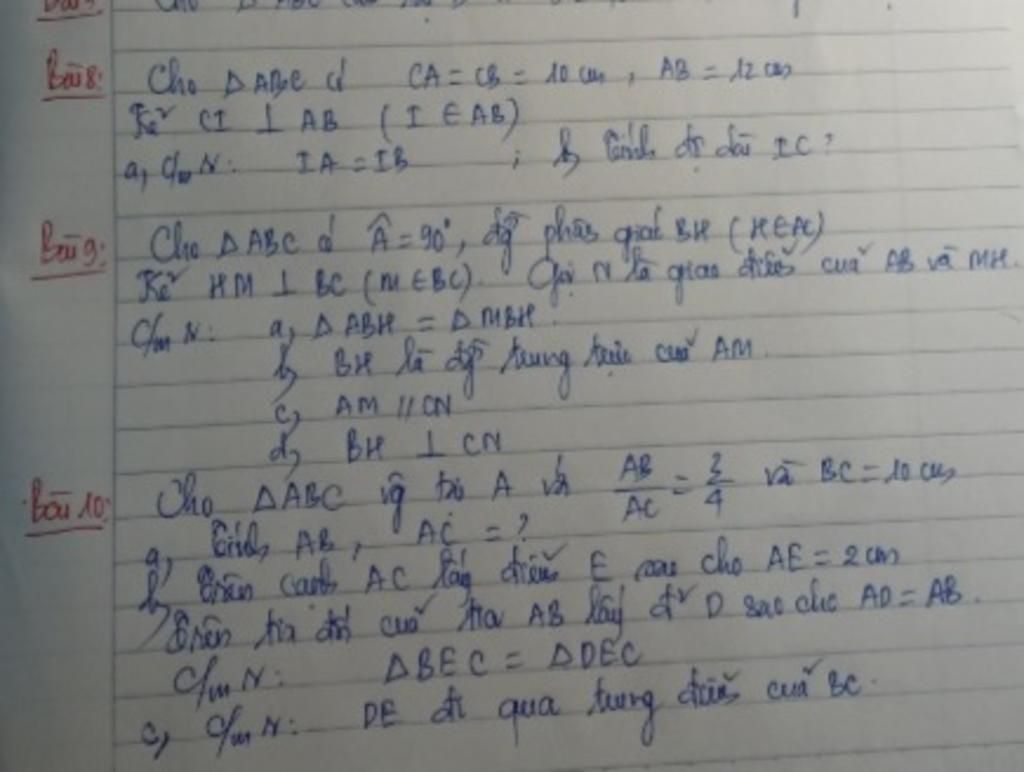 Cho △ABC
Bài 8: Cho △ABC có CA = CB = 10 cm, AB = 12 cm
Kẻ CI ⊥ AB (I ∈ AB)
a, C/m N: IA = IB ; b, Tính độ dài IC?
Bài 9: Cho △ABC có Â = 90°, đg phân giác BH (H∈AC)
Kẻ HM ⊥ BC (M ∈ BC). Gọi N là giao điểm của AB và MH.
C/m N: a, △ABH = △MBH.
b, BH là đg trung trực của AM.
c, AM // CN
d, BH ⊥ CN
Bài 10: Cho △ABC vg tại A và AB/AC = 3/4 và BC = 10 cm
a, Tính AB, AC = ?
b, Trên cạnh AC lấy điểm E sao cho AE = 2 cm
Trên tia đối của tia AB lấy đ' D sao cho AD = AB.
C/m N: △BEC = △DEC
c, C/m N: DE đi qua trung điểm của BC.